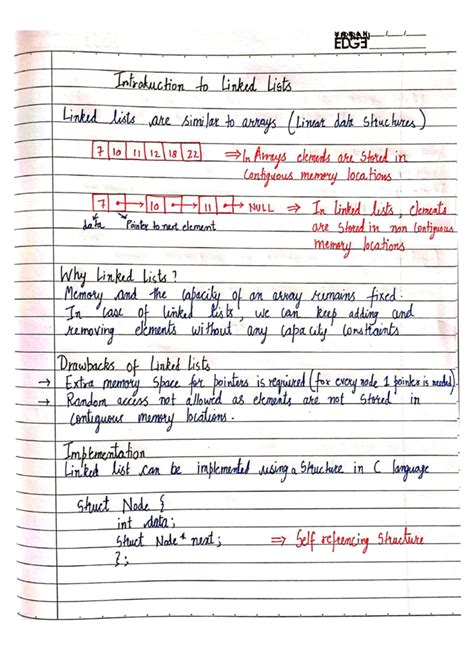 URBAN
EDGE
Introduction to Linked Lists
Linked lists are similar to arrays (Linear data structures)
7 10 11 12 18 22 ⇒ In Arrays elements are Stored in
Contiguous memory locations
7 → 10 → 11 → NULL ⇒ In linked lists, elements
data Pointer to next element are stored in non contiguous
memory locations
Why Linked Lists?
Memory and the capacity of an array remains fixed.
In case of linked lists, we can keep adding and
removing elements without any capacity constraints
Drawbacks of Linked Lists
→ Extra memory space for pointers is required (for every node 1 pointer is needed)
→ Random access not allowed as elements are not stored in
contiguous memory locations.
Implementation
Linked list can be implemented using a structure in C language
struct Node {
int data;
struct Node* next; ⇒ Self refrencing structure
};